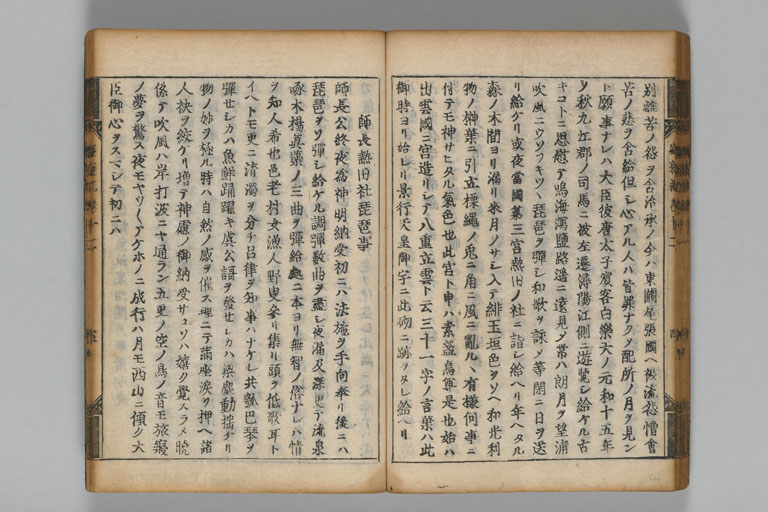 別離苦ノ怨ヲ含治承ノ今ハ東關尾張國ヘ被流怨憎會
苦ノ悲ヲ含給但シ心アル人ハ皆罪ナクメ配所ノ月ヲ見ン
ト願事ナレハ大臣彼唐太子賓客白樂天ノ元和十五年
ソ秋九江郡ノ司馬ニ被左遷潯陽江側ニ遊覧シ給ケル古
キコトニ思慰テ鳴海潟鹽路遥ニ遠見ノ常ハ朗月ヲ望浦
吹風ニウソフキツヽ琵琶ヲ彈シ和歌ヲ詠メ等閑ニ日ヲ送
リ給ケリ或夜當國第三宮熱旧ノ社ニ詣シ給ヘリ年ヘタル
森ノ木間ヨリ漏リ來月ノサシ入テ緋玉垣色ヲソヘ和光利
物ノ榊葉ニ引立標繩ノ兎ニ角ニ風ニ亂ルヽ有樣何事ニ
付テモ神サヒタル氣色也此宮ト申ハ素盞烏尊是也始ハ
出雲國ニ宮造リシテ八重立雲ト云三十一字ノ言葉ハ此
御時ヨリ始レリ景行天皇御宇ニ此砌ニ跡ヲタレ給ヘリ
師長熱旧社琵琶事
師長公終夜爲神明納受初ニハ法施ヲ手向奉リ後ニハ
琵琶ヲソ彈シ給ケル調彈數曲ヲ盡シ夜漏及深更テ流泉
啄木楊眞藥ノ三曲ヲ彈給處ニ本ヨリ無智ノ俗ナレハ情
ヲ知人希也邑老村女漁人野叟參リ集リ頭ヲ低欹耳ト
イヘトモ更ニ清濁ヲ分チ呂律ヲ知事ハナケレ共瓠巴琴ヲ
彈セシカハ魚鱗踊躍キ虞公謌ヲ發セシカハ梁塵動揺ケリ
物ノ妙ヲ極ル時ハ自然ノ感ヲ催ス理ニテ滿座涙ヲ押ヘ諸
人袂ヲ絞ケリ増テ神慮ノ御納受サコソハ嬉ク覺スラメ曉
係テ吹風ハ岸打波ニヤ通ラン五更ノ空ノ鳥ノ音モ旅寢
ノ夢ヲ驚ス夜モヤウ〱アケホノニ成行ハ月モ西山ニ傾ク大
臣御心ヲスマシテ初ニハ